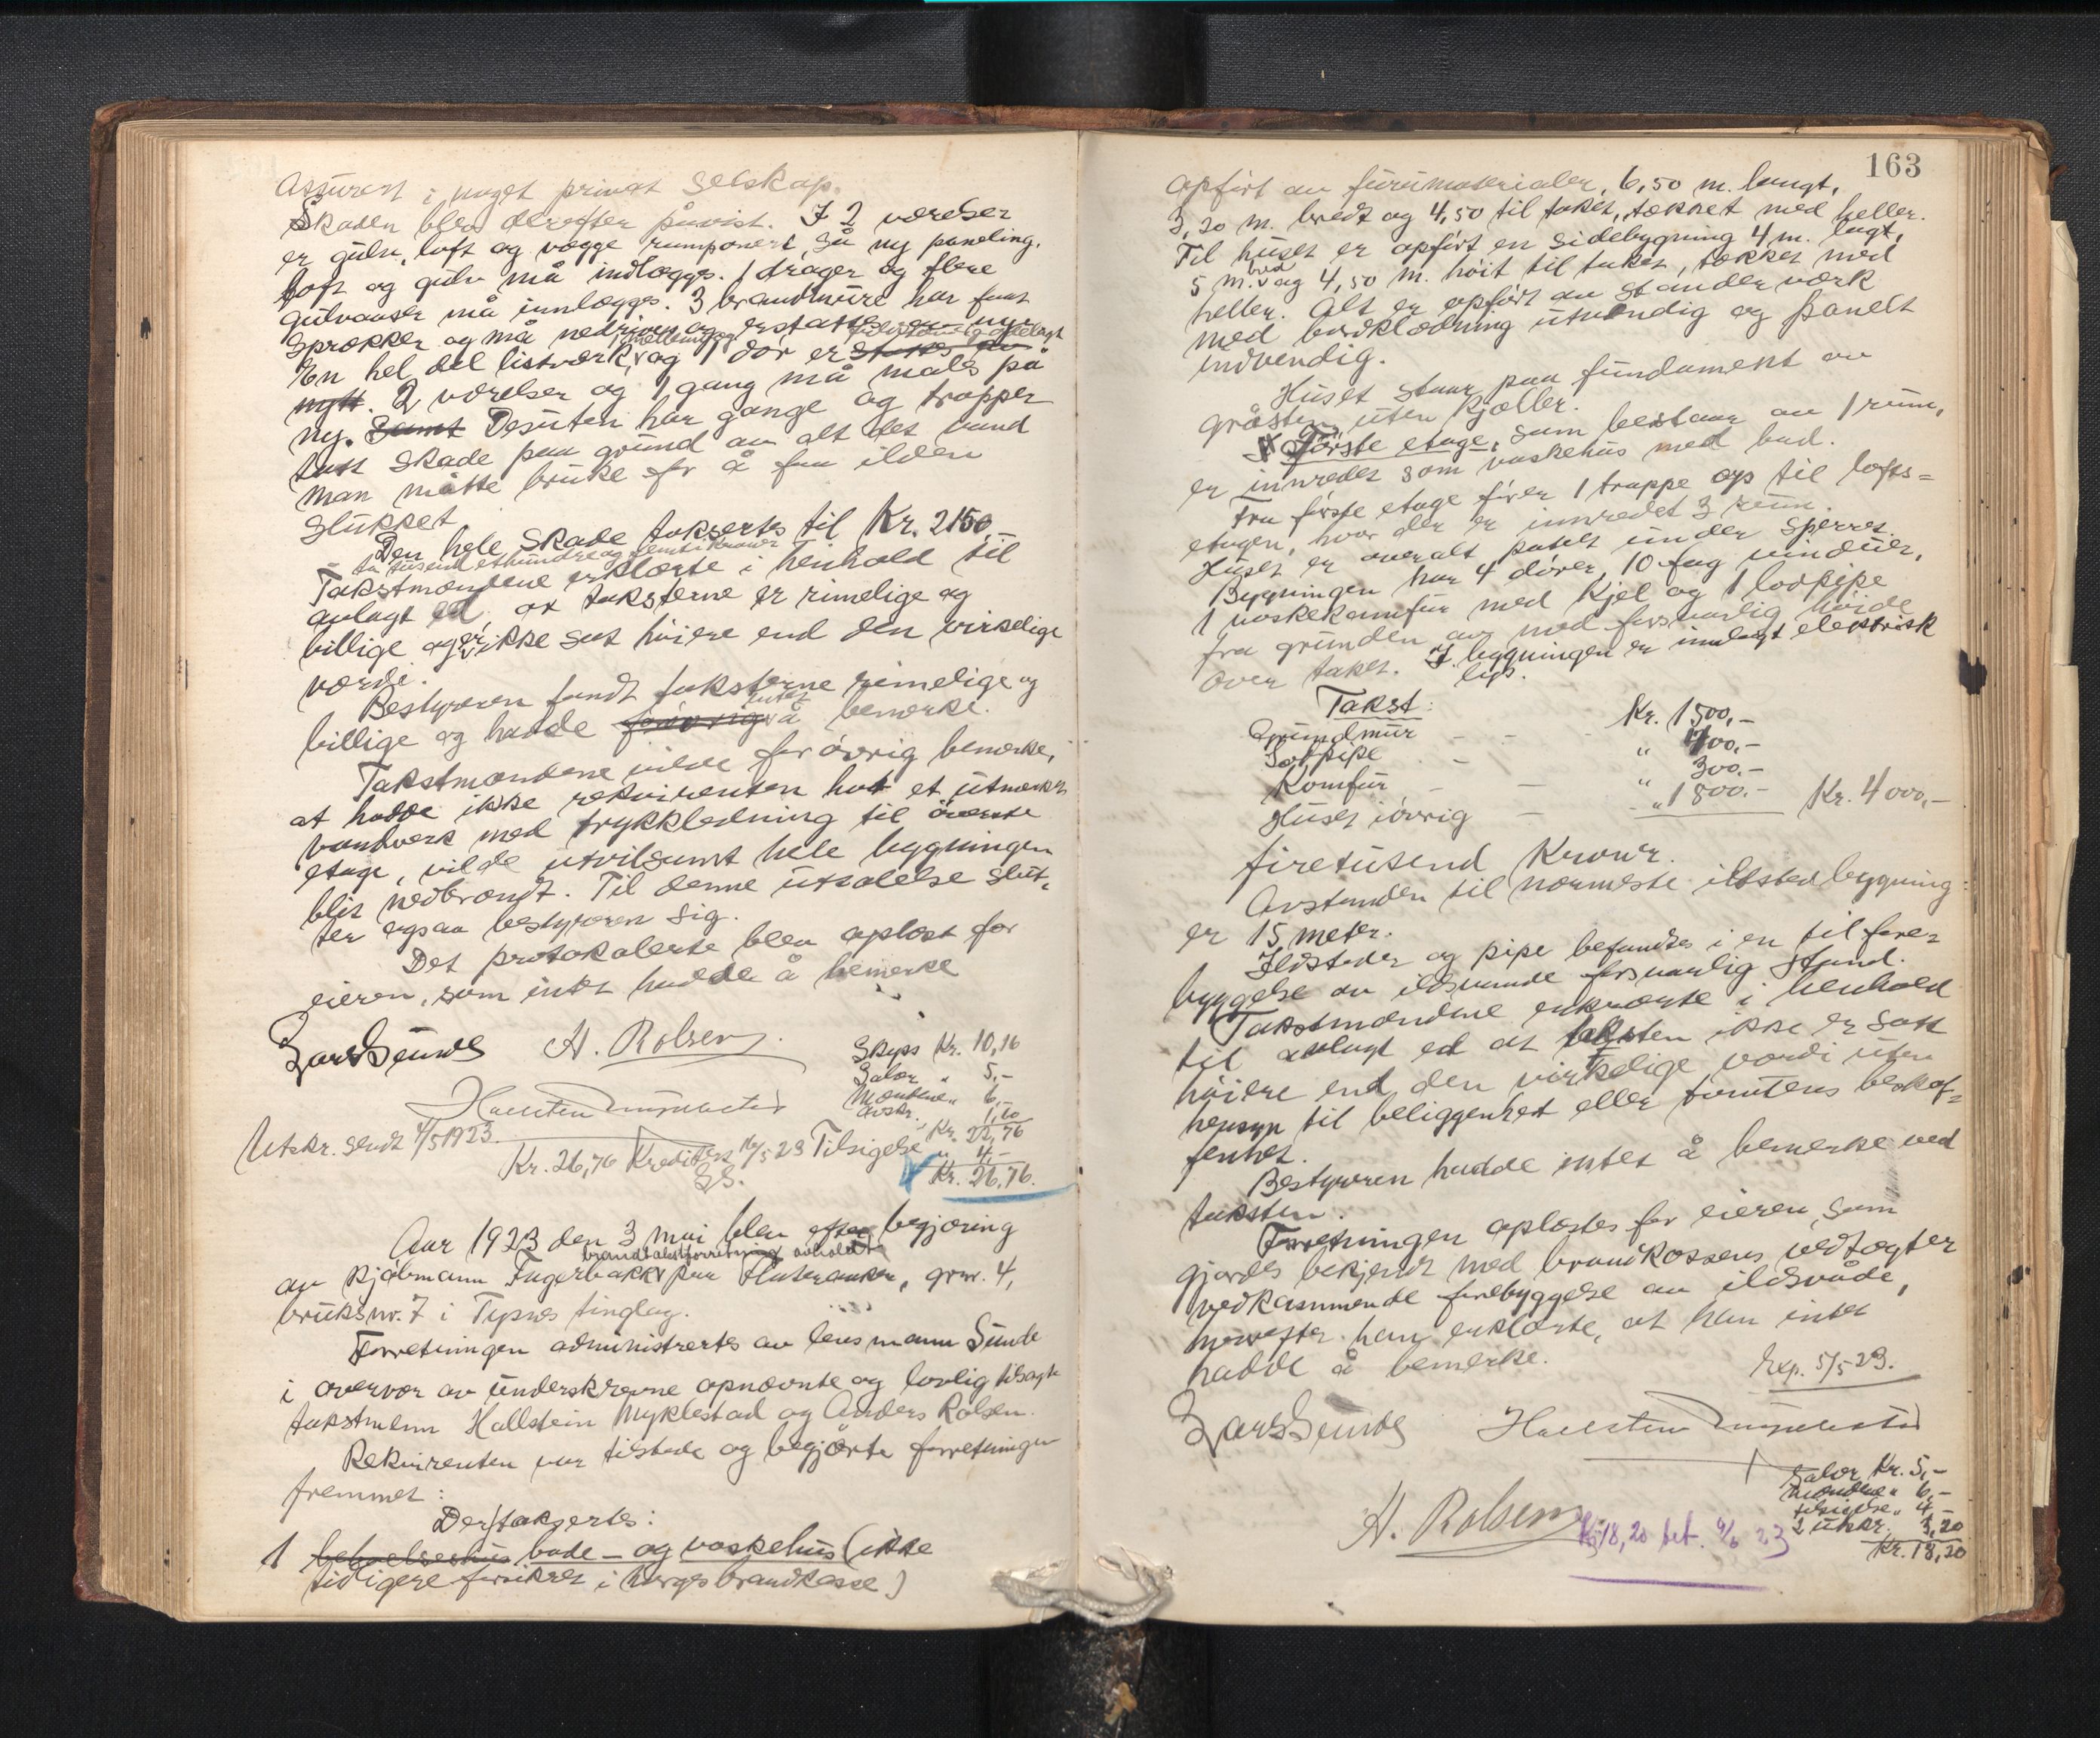 Assurert i noget privat Selskap.
Skaden blev derefter påvist. I 2 værelser
er gulv, loft og vægge ramponert så ny paneling,
loft og gulv må indlægges. 1 drager og flere
gulvaaser må innlægges. 3 brandmure har faat
sprækker og må nedrives og erstattes av nye
En hel del listverk, og 1 dør er
nytt. 2 værelser og 1 gang må males på
ny. Samt Desuten har gange og trapper
tatt skade paa grund av alt det vand
man måtte bruke for å faa ilden
slukket
Den hele skade takseres til Kr. 2150,-
to tusend ethundreogfemti kroner
Takstmændene erklærte i henhold til
avlagt ed, at taksterne er rimelige og
billige og er ikke sat høiere end den virkelige
værdi.
Bestyreren fandt taksterne rimelige og
billige og hadde forøvrig intet å bemerke.
Takstmændene vilde forøvrig bemerke,
at hadde ikke rekvirenten hat et utmerket
vandverk med trykkledning til øverste
etage, vilde utvilsomt hele bygningen
blit nedbrændt. Til denne uttalelse slut-
ter ogsaa bestyreren sig.
Det protokolerte blev oplæst for
eieren, som intet hadde å bemerke
Lars Sunde A. Rolsen
Skyss Kr. 10,16
Salær " 5,-
Mændene " 6,-
Avskr. " 1,60
Kr. 22,76
Hallstein Myklestad
Utskr. sendt 4/5 1923.
Kr. 26,76 Krediters 16/5 23 Tilsigelse " 4,-
LS.
Kr. 26,76.
Aar 1923 den 3 mai blev efter begjæring
brandtakstforretning avholdt
av Kjøbmann Fagerbakk paa Flateraaker, grnr. 4,
bruksnr. 7 i Tysnes tinglag.
Forretningen administrertes av lensmann Sunde
i overvær av underskrevne opnævnte og lovlig tilsagte
takstmenn Hallstein Myklestad og Anders Rolsen.
Rekvirenten var tilstede og begjærte forretningen
fremmet:
Der taksertes:
1 beboelseshus bade- og vaskehus (ikke
tidligere forsikret i Norges brandkasse)
163
opført av furumaterialer, 6,50 m. langt,
3,20 m. bredt og 4,50 til taket, tækket med heller.
Til huset er opført en sidebygning 4 m. lagt,
5 m. bred og 4,50 m. høit til taket, tækket med
heller. Alt er opført av standerverk
med bordklædning utvendig og panelt
indvendig.
Huset staar paa fundament av
gråsten, uten kjæller.
I Første etage, som bestaar av 1 rum,
er innredet som vaskehus med bad.
Fra første etage fører 1 trappe op til lofts=
etagen, hvor der er innredet 3 rum.
Huset er overalt panelt under sperrer.
Bygningen har 4 dører, 10 fag vinduer,
1 vaskekomfur med kjel og 1 lodpipe
fra grunden av med forsvarlig høide
over taket. I bygningen er innlagt elektrisk
lys.
Takst:
Grundmur - - - Kr. 1500,-
Lodpipe - - " 400,-
Komfur - - " 300,-
Huset iøvrig - " 1800,- Kr. 4000,-
firetusend Kroner.
Avstanden til nærmeste ildstedbygning
er 15 meter.
Ildsteder og pipe befandtes i en til fore-
byggelse av ildsvaade forsvarlig stand.
Takstmændene erklærte i henhold
til avlagt ed at taksten ikke er satt
høiere end den virkelige værdi uten
hensyn til beliggenhet eller tomtens beskaf=
fenhet.
Bestyreren hadde intet å bemerke ved
taksten.
Forretningen oplæstes for eieren, som
gjordes bekjendt med brandkassens vedtægter
vedkommende forebyggelse av ildsvåde,
hvorefter han erklærte, at han intet
hadde å bemerke.
Exp. 5/5 23.
Lars Sunde Hallstein Myklestad
Salær Kr. 5,-
Mændene " 6,-
tilsigelse " 4,-
2 utskr. 3,20
Kr. 18,20
A. Rolsen
Kr 18,20 bet. 9/6 23